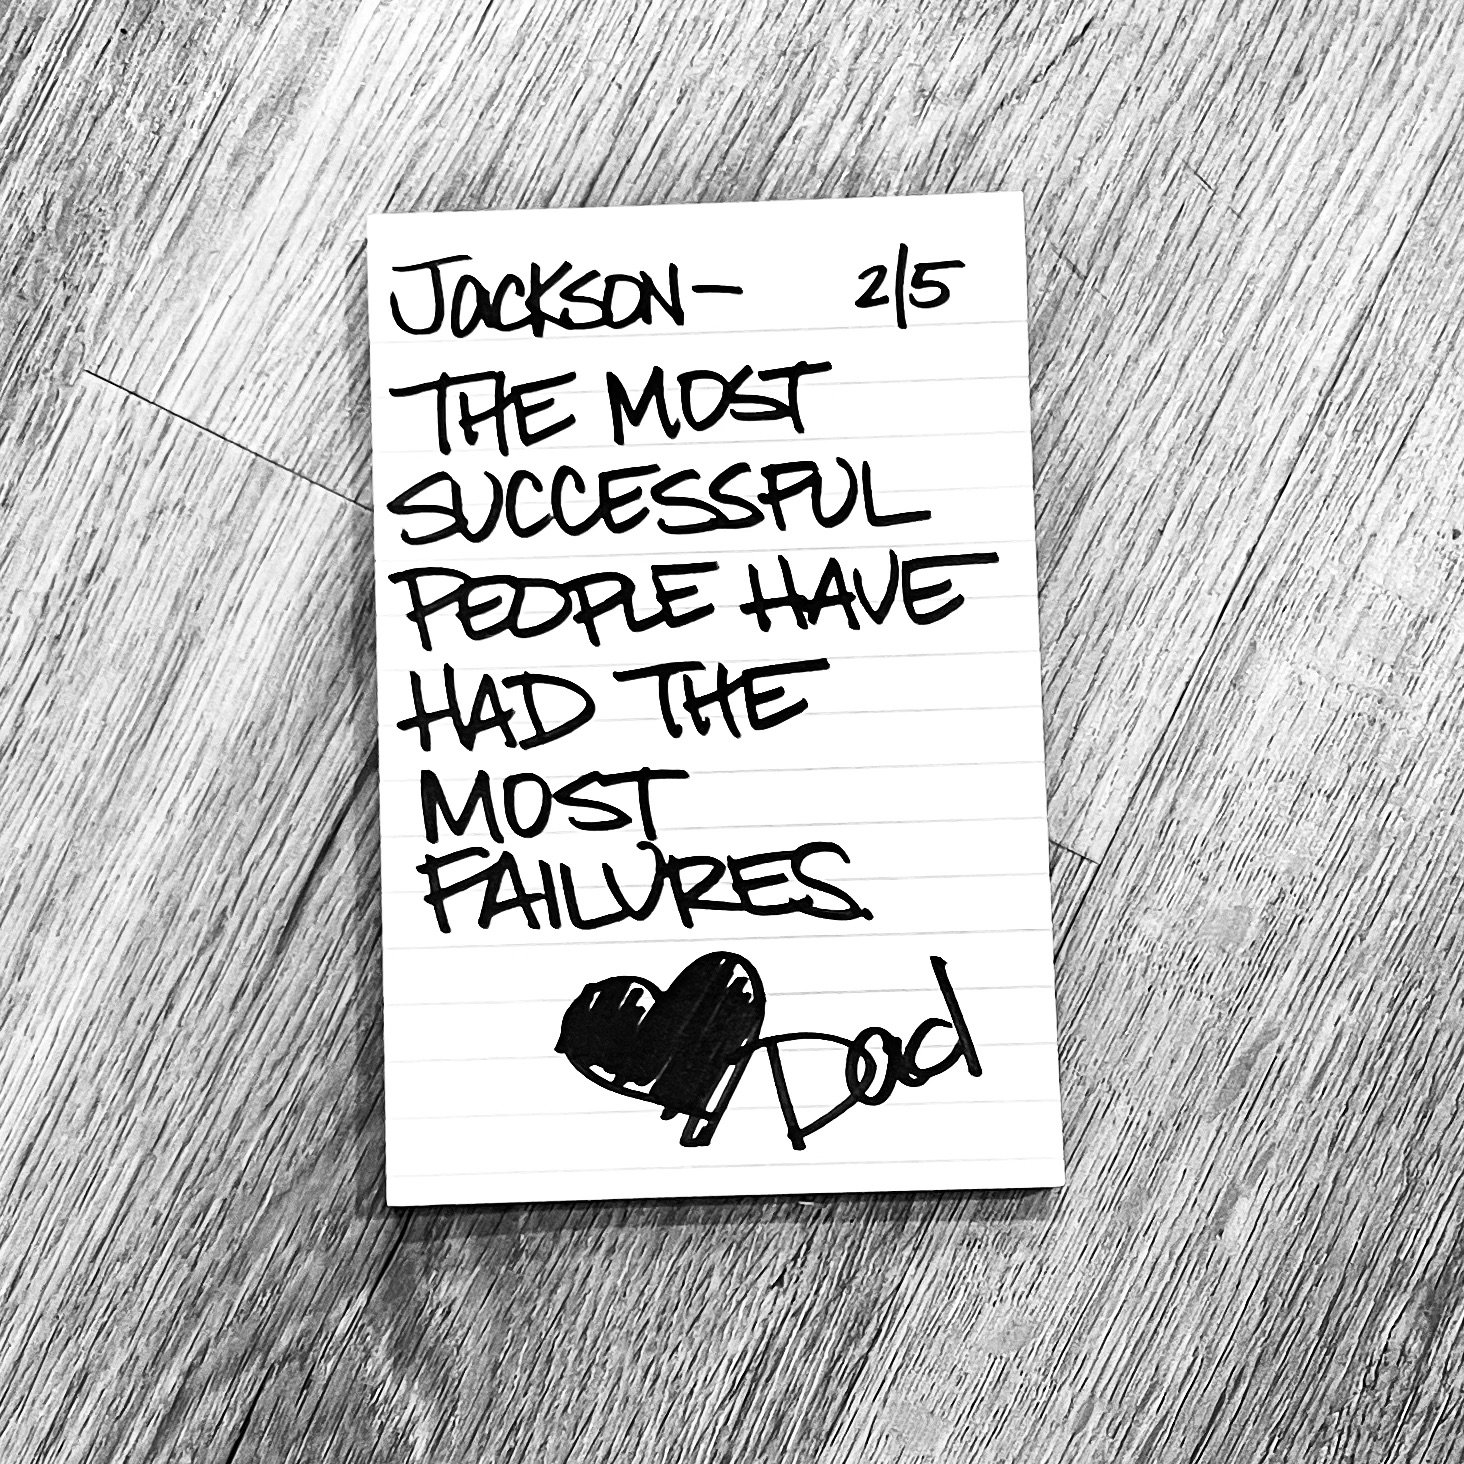 Jackson- 2/5
THE MOST
SUCCESSFUL
PEOPLE HAVE
HAD THE
MOST
FAILURES.
Dad